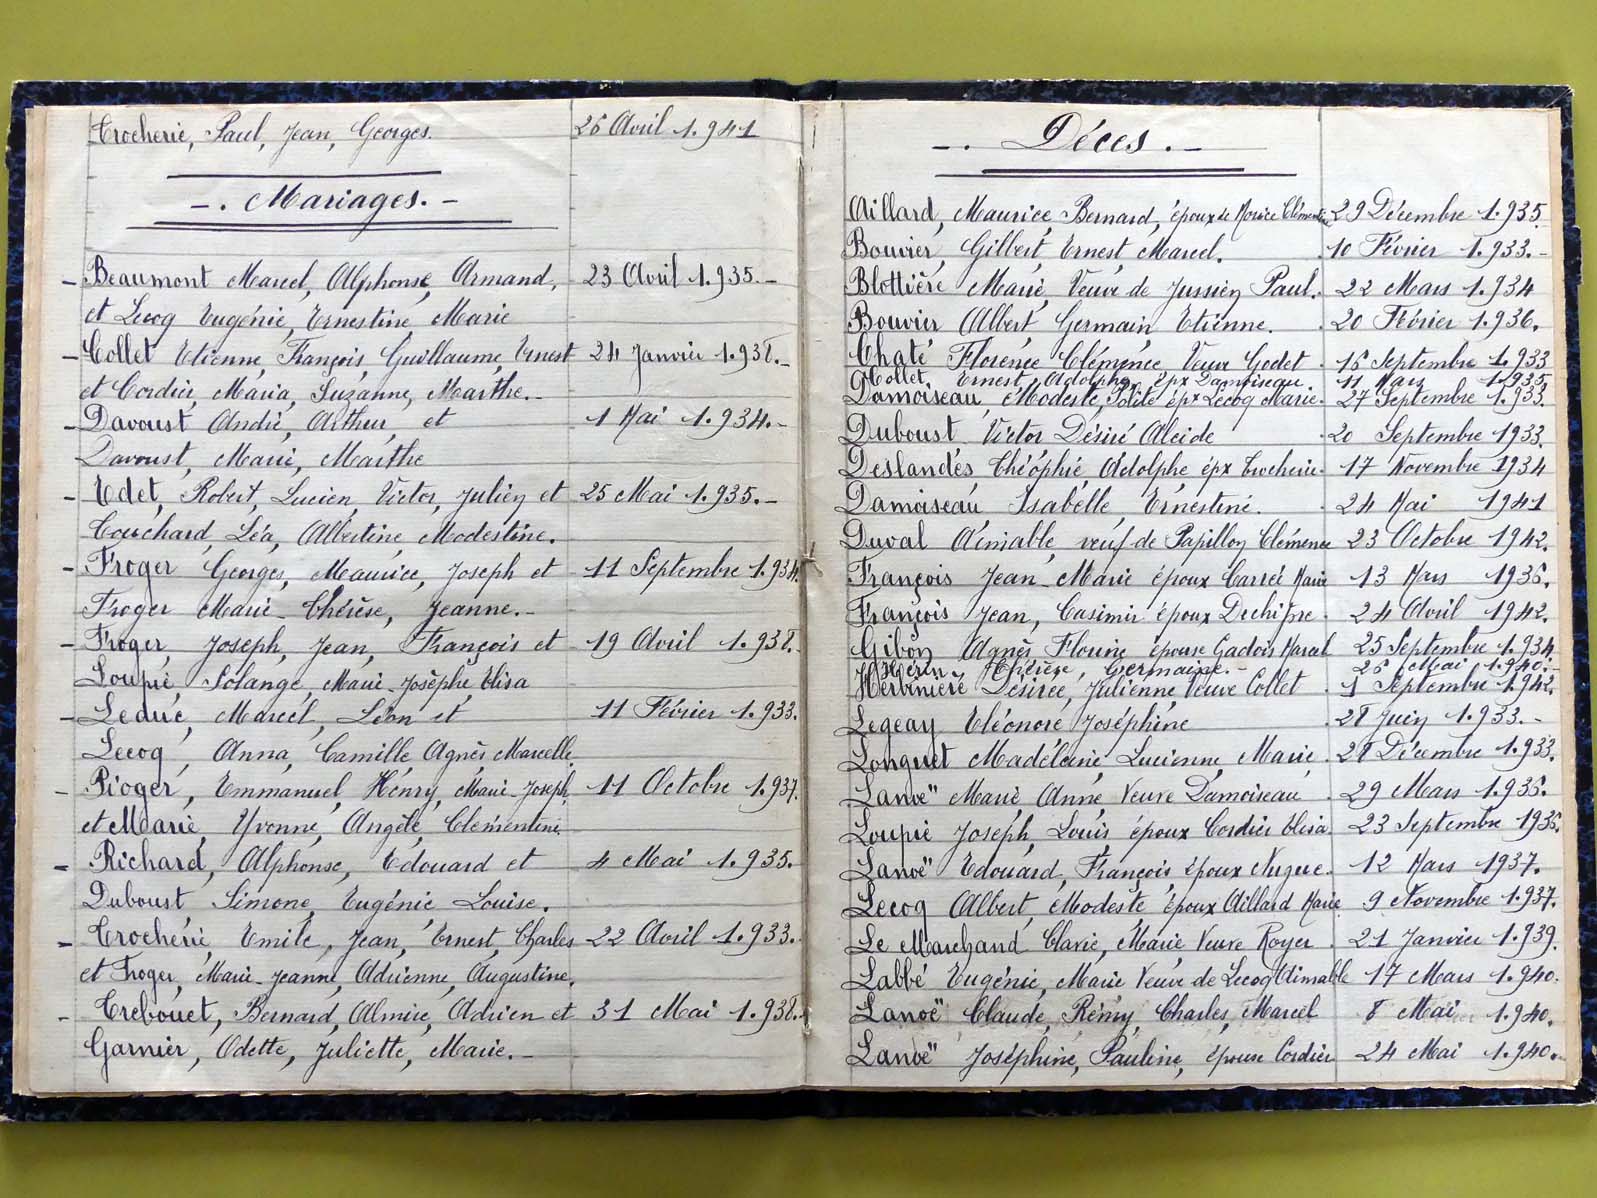 Trocherie, Paul, Jean, Georges. 26 Avril 1.941
-. Mariages. -
- Beaumont Marcel, Alphonse, Armand, 23 Avril 1.935.-
et Lecoq Eugénie, Ernestine, Marie
- Collet Etienne, François, Guillaume, Ernest 24 Janvier 1.938.-
et Cordier, Maria, Suzanne, Marthe.-
- Davoust André, Arthur, et 1 Mai 1.934.-
Davoust, Marie, Marthe
- Edet, Robert, Lucien, Victor, Julien et 25 Mai 1.935.-
Couchard, Léa, Albertine Modestine.
- Froger Georges, Maurice, Joseph et 11 Septembre 1.934.
Froger Marie-Thérèse, Jeanne.-
- Froger, Joseph, Jean, François et 19 Avril 1.938.-
Loupie, Solange, Marie-Josèphe Elisa
- Leduc, Marcel, Léon et 11 Février 1.933.
Lecoq, Anna, Camille, Agnès Marcelle
- Pioger, Emmanuel, Henry, Marie-Joseph, 11 Octobre 1.937.
et Marie, Yvonne, Angèle, Clémentine
- Richard, Alphonse, Edouard et 4 Mai 1.935.
Duboust Simone, Eugénie Louise.
- Trocherie Emile, Jean, Ernest, Charles 22 Avril 1.933.
et Froger, Marie-Jeanne, Adrienne, Augustine.
- Trebouet, Bernard, Almire, Adrien et 31 Mai 1.938.
Garnier, Odette, Juliette, Marie.-
-. Déces. -
Aillard, Maurice, Bernard, époux de Clémentine 29 Décembre 1.935.
Bouvier, Gilbert, Ernest Marcel. 10 Février 1.933.-
Blottière Marie, Veuve de Jussien Paul. 22 Mars 1.934
Bouvier Albert, Germain, Etienne. 20 Février 1.936.
Chaté Florence Clémence Veuve Godet 16 Septembre 1.933
Collet, Ernest, Adolphe, épx Damoiseau. 11 Mars 1.935
Damoiseau, Modeste, Polite épx Lecoq Marie. 27 Septembre 1.933.
Duboust Victor Désiré Alcide 20 Septembre 1933.
Deslandes Théophie, Adolphe épx Trocherie. 17 Novembre 1934
Damoiseau Isabelle Ernestine. 24 Mai 1941
Duval Aimable, veuf de Papillon Clémence 23 Octobre 1942.
François Jean-Marie époux Carrée Marie 13 Mars 1936.
François Jean, Casimir époux 24 Avril 1942.
Gibon Agnès Florine épouse Gadois Marcel 25 Septembre 1.934
Hérin Thérèse, Germaine.- 26 Mai 1.940.-
Herbinière Désirée, Julienne Veuve Collet 1 Septembre 1.942.
Legeay Eléonore Joséphine 28 Juin 1.933.-
Longuet Madeleine Lucienne, Marie 28 Décembre 1.933.
Lanoë Marie Anne Veuve Damoiseau 29 Mars 1.936.
Loupie Joseph, Louis époux Cordier Elisa 23 Septembre 1936.
Lanoë Edouard, François époux 12 Mars 1937.
Lecoq Albert, Modeste époux Aillard Marie 9 Novembre 1.937.
Le Marchand Clarie, Marie Veuve Royer 21 Janvier 1.939.
Labbé Eugénie, Marie Veuve de Lecoq Aimable 17 Mars 1.940.
Lanoë Claude, Rémy, Charles, Marcel 8 Mai 1.940.
Lanoë Joséphine, Pauline, épouse Cordier 24 Mai 1.940.